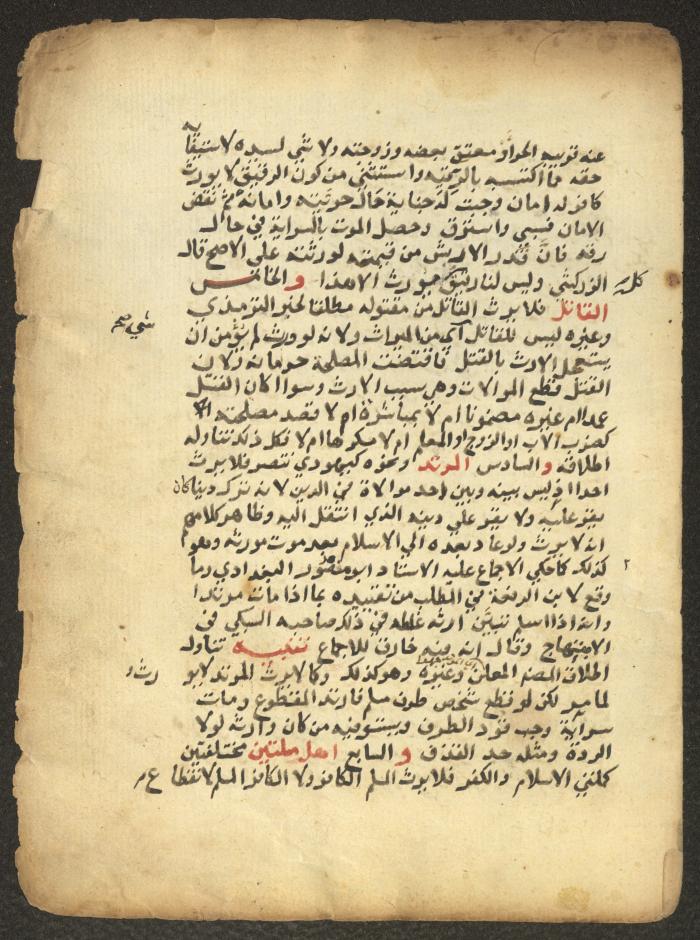 عنه قريبه الحر او معتق بعضه وزوجته ولا شي لسيده لاستيفائه
حقه مما اكتسبه بالرقية واستثني من كون الرقيق لا يورث
كافر له امان وجبت له جناية حال حريته وامانه ثم نقض
الامان فسبي واسترق وحصل الموت بالسراية في حال
رقه فان قدر الارش من قيمته لورثته على الاصح قال
الزركشي وليس لنا رقيق يورث الا هذا والخامس كله
القاتل فلا يرث القاتل من مقتوله مطلقا لخبر الترمذي
وغيره ليس للقاتل شي من الميراث ولانه لو ورث لم يؤمن ان شي صح
يستعجل الارث بالقتل فاقتضت المصلحة حرمانه ولان
القتل قطع الموالات وهي سبب الارث وسوا اكان القتل
عمدا ام غيره مضمونا ام لا بمباشرة ام لا قصد مصلحته
كضرب الاب او الزوج او المعلم ام لا مكرها ام لا فكل ذلك تناوله
اطلاقه والسادس المرتد ونحوه كيهودي تنصر فلا يرث
احدا اذ ليس بينه وبين احد موالاة في الدين لانه ترك دينا كان
يقر عليه ولا يقر على دينه الذي انتقل اليه وظاهر كلامهم
انه لا يرث ولو عاد بعده الي الاسلام بعد موت مورثه وهو
كذلك كما حكي الاجماع عليه الاستاد ابو منصور البغدادي وما ٢
وقع لابن الرفعة في المطلب من تقييده بما اذا مات مرتدا
وانه اذا اسلم تبين ارثه غلطه في ذلك صاحبه السبكي في
الابتهاج وقال انه فيه خارق للاجماع تنبيه تناول
اطلاق المصنف المعلن وغيره وهو كذلك وكما لا يرث المرتد لا يورث
لما مر لكن لو قطع شخص طرف مسلم فارتد المقطوع ومات
سراية وجب قود الطرف ويستوفيه من كان وارثه لولا
الردة ومثله حد القذف والسابع اهل ملتين مختلفتين
كملتي الاسلام والكفر فلا يرث المسلم الكافر ولا الكافر المسلم لانقطاع